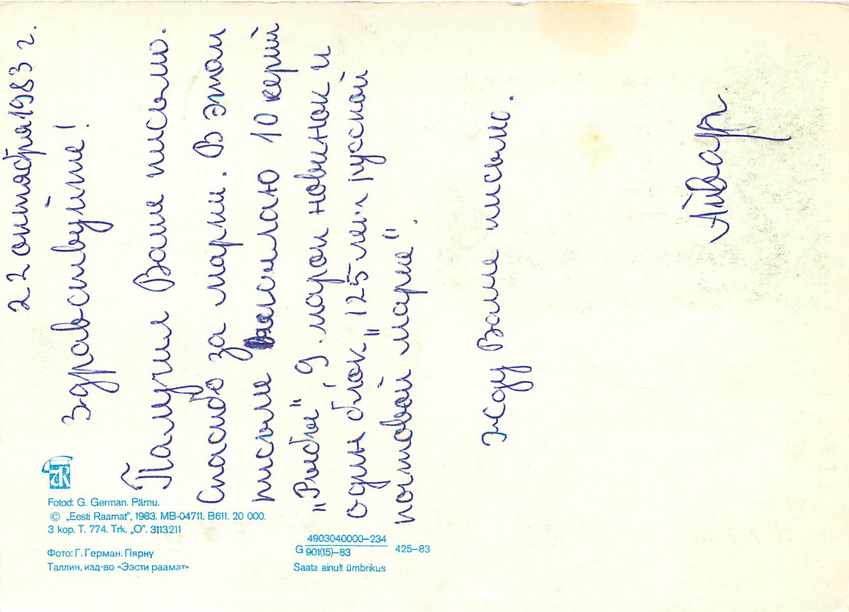 22 октября 1983 г.
Здравствуйте!
Палучил Ваше письмо.
Спасибо за марки. В этом
письме высилаю 10 керий
„Рыбы", 9 марок новинок и
один блок „125 лет русской
потовой марке".
Жду Ваше письмо.
Айвар
Fotod: G. German. Pärnu.
© „Eesti Raamat", 1983. MB-04711. B611. 20 000.
3 kop. T. 774. Trk. „O". 3113211
Фото: Г. Герман. Пярну
Таллин, изд-во «Ээсти раамат»
4903040000—234
G 901(15)—83
425—83
Saata ainult ümbrikus